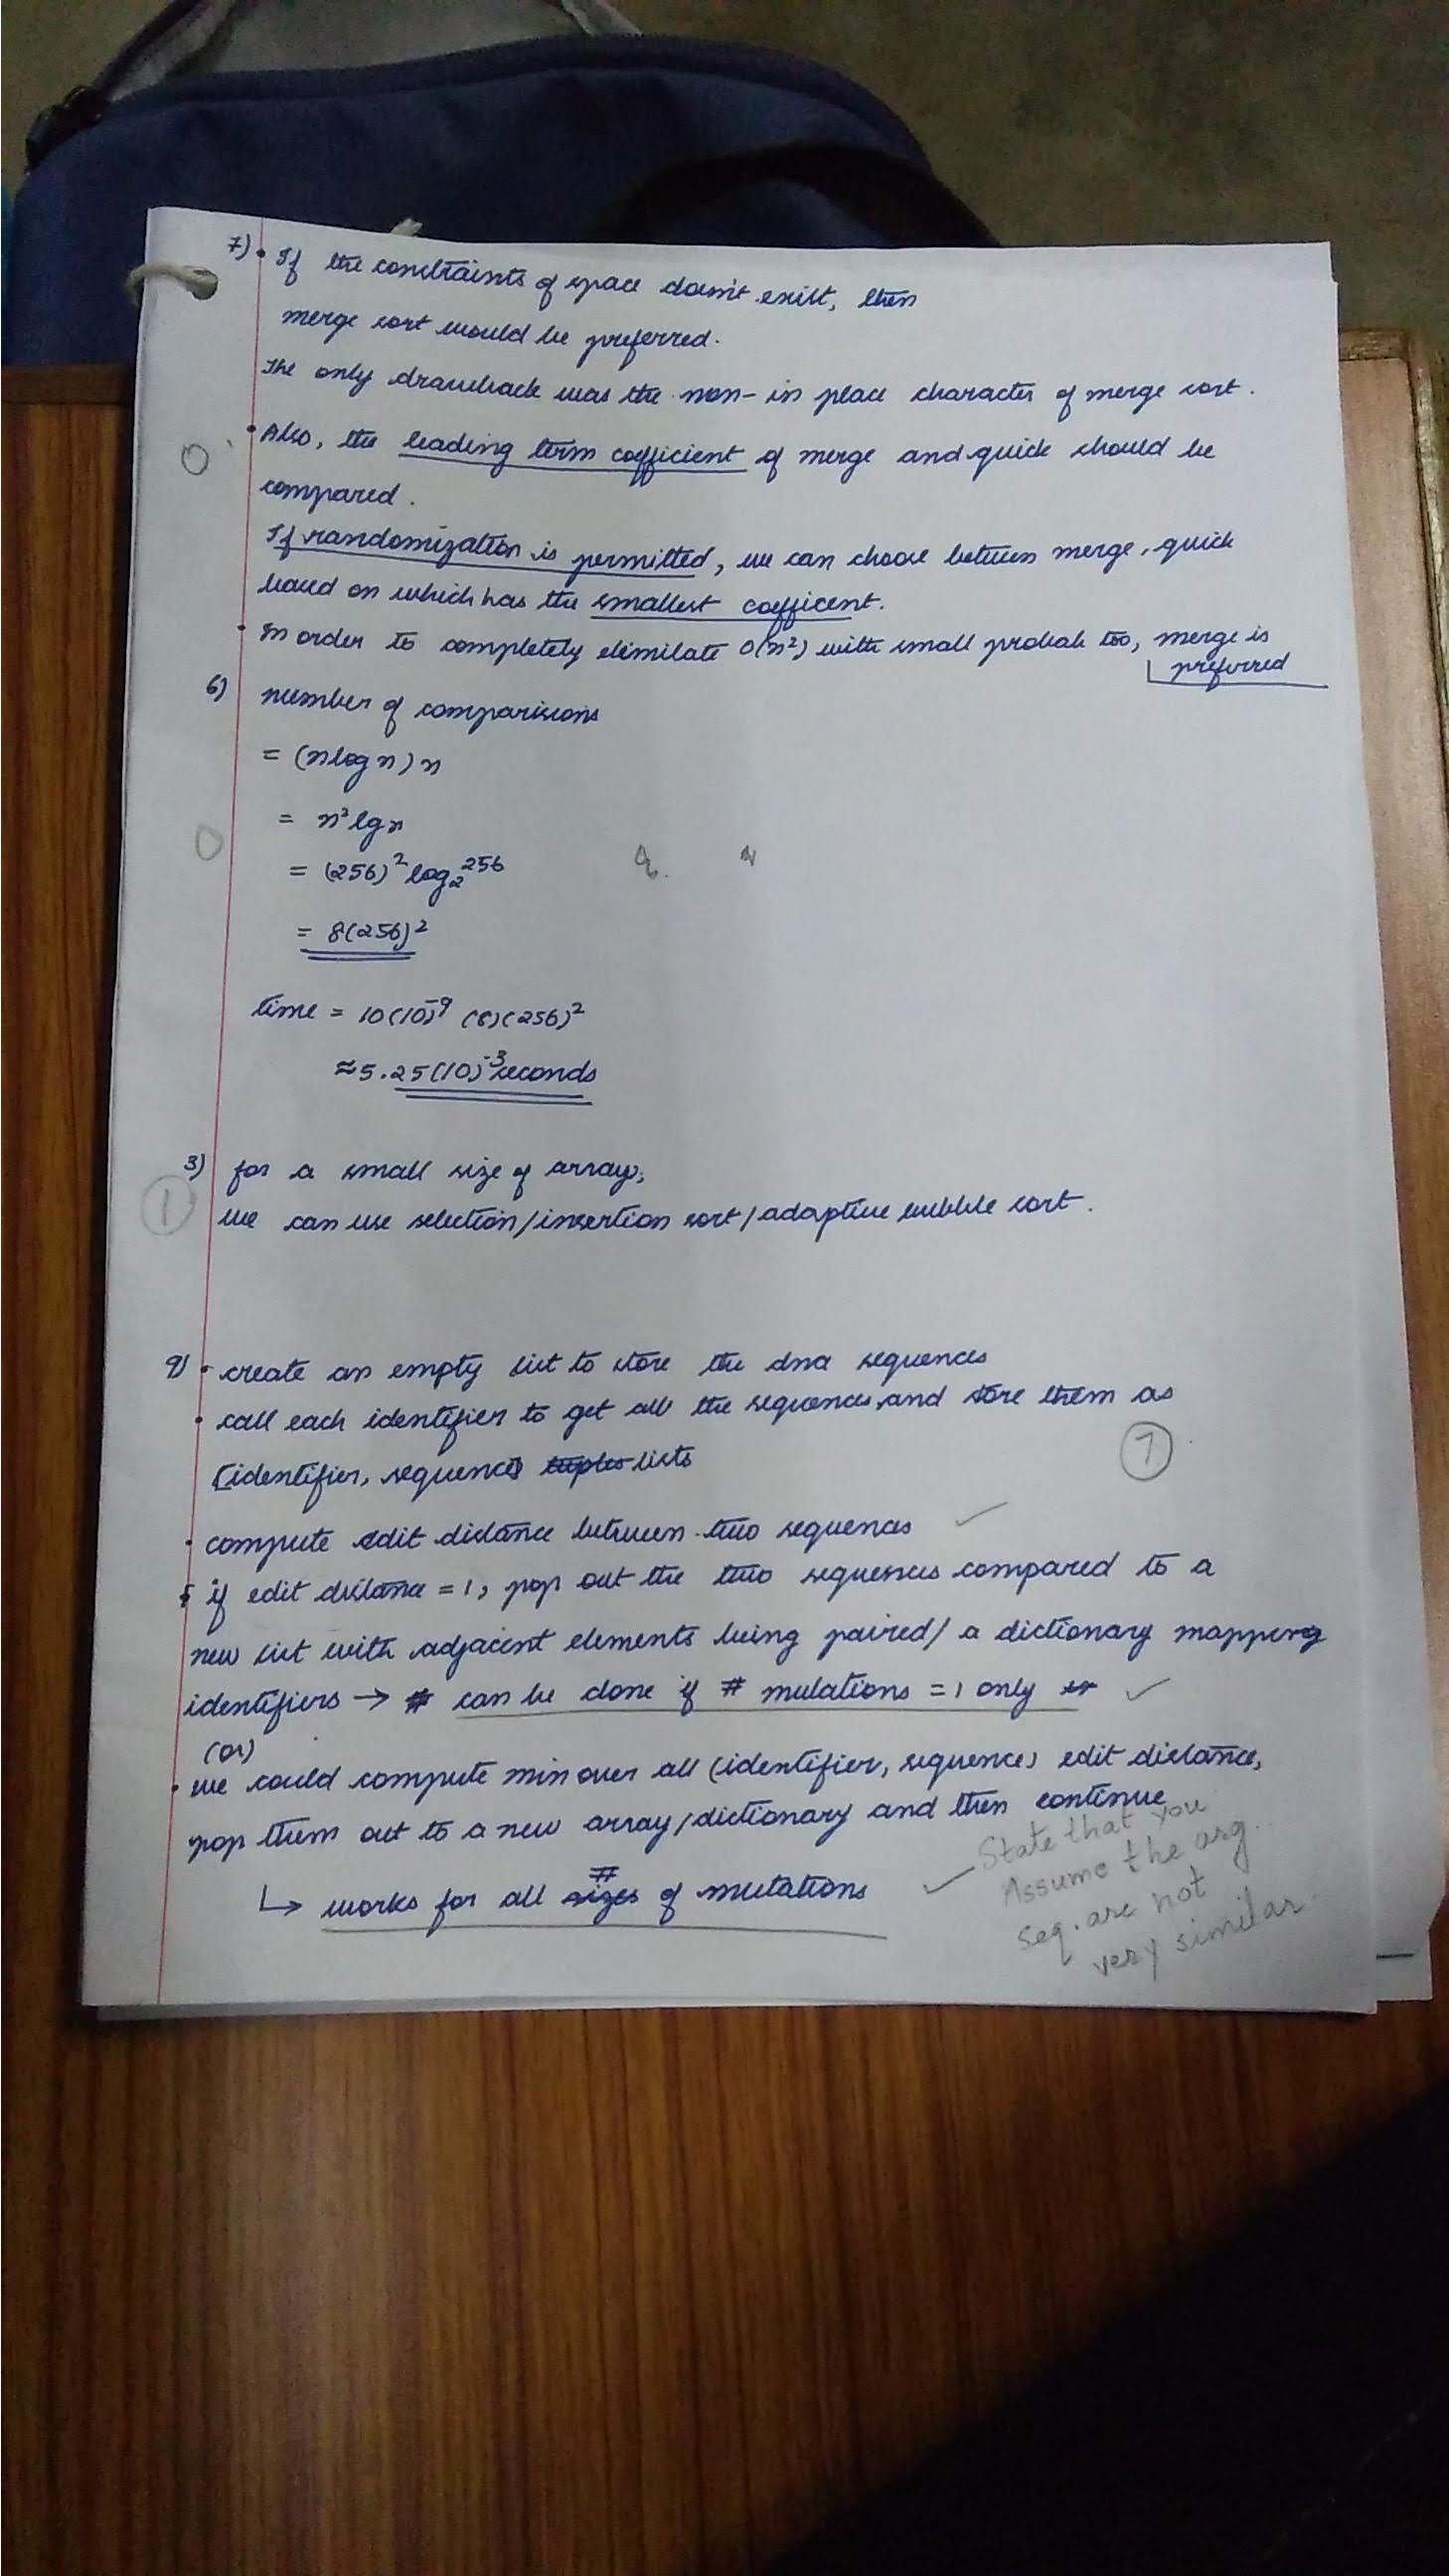 7) • If the constraints of space doesn't exist, then
merge sort would be preferred.
The only drawback was the non-in place character of merge sort.
0 • Also, the leading term coefficient of merge and quick should be
compared.
If randomization is permitted, we can choose between merge, quick
based on which has the smallest coefficent.
• In order to completely elimilate O(n²) with small probab too, merge is
preferred
6) number of comparisions
= (n log n) n
= n² lg n
0
= (256)² log₂ 256
= 8(256)²
time = 10(10)⁻⁹ (8)(256)²
≈ 5.25(10)⁻³ seconds
3) for a small size of array,
1 we can use selection/insertion sort/adaptive bubble sort.
9) • create an empty list to store the dna sequences
• call each identifier to get all the sequences and store them as
7
[identifier, sequence] tuples lists
• compute edit distance between two sequences ✓
• if edit distance = 1, pop out the two sequences compared to a
new list with adjacent elements being paired/ a dictionary mapping
identifiers → # can be done if # mutations = 1 only or ✓
(or)
• we could compute min over all (identifier, sequence) edit distance,
pop them out to a new array/dictionary and then continue
↳ works for all sizes # of mutations ✓
State that you
Assume the org.
seq. are not
very similar.